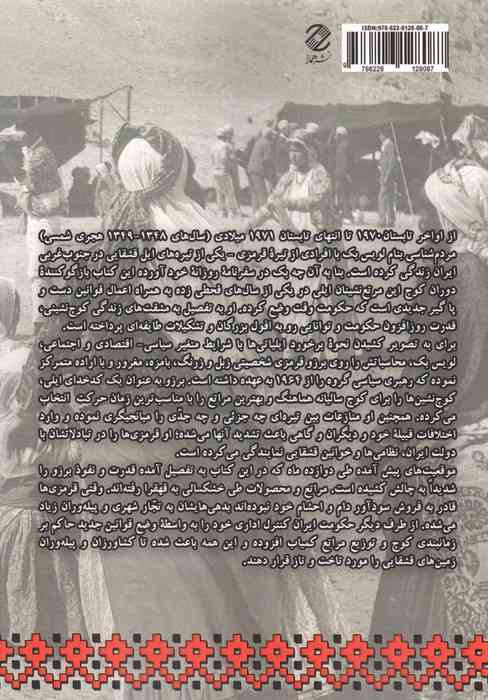 ISBN: 978-622-6126-06-7
9 786226 126067
نشر همواز
از اواخر تابستان ۱۹۷۰ تا انتهای تابستان ۱۹۷۱ میلادی (سال‌های ۱۳۴۸-۱۳۴۹ هجری شمسی)
مردم‌شناسی بنام لویس بک با افرادی از تیرهٔ قرمزی - یکی از تیره‌های ایل قشقایی در جنوب‌غربی
ایران زندگی کرده است. بنا به آن چه بک در سفرنامهٔ روزانهٔ خود آورده این کتاب بازگوکنندهٔ
دوران کوچ این مرتع‌نشینان ایلی در یکی از سال‌های قحطی زده به همراه اعمال قوانین دست و
پا گیر جدیدی است که حکومت وقت وضع کرده. او به تفصیل به مشقت‌های زندگی کوچ‌نشینی،
قدرت روزافزون حکومت و توانایی رو به افول بزرگان و تشکیلات طایفه‌ای پرداخته است.
برای به تصویر کشیدن نحوهٔ برخورد ایلیاتی‌ها با شرایط متغیر سیاسی- اقتصادی و اجتماعی،
لویس بک، محاسباتش را روی برزو قرمزی شخصیتی زبل و زرنگ، بامزه، مغرور و با اراده متمرکز
نموده که رهبری سیاسی گروه را از ۱۹۶۲ به عهده داشته است. برزو به عنوان یک کدخدای ایلی،
کوچ‌نشین‌ها را برای کوچ سالیانه هماهنگ و بهترین مراتع را با مناسب‌ترین زمان حرکت انتخاب
می‌کرده. همچنین او منازعات بین تیره‌ای چه جزئی و چه جدّی را میانجیگری نموده و وارد
اختلافات قبیلهٔ خود و دیگران و گاهی باعث تشدید آنها می‌شده؛ او قرمزی‌ها را در تبادلاتشان با
دولت ایران، نظامی‌ها و خوانین قشقایی نمایندگی می‌کرده است.
موقعیت‌های پیش آمده طی دوازده ماه که در این کتاب به تفصیل آمده قدرت و نفوذ برزو را
شدیداً به چالش کشیده است. مراتع و محصولات طی خشکسالی به قهقرا رفته‌اند. وقتی قرمزی‌ها
قادر به فروش سودآور دام و احشام خود نبوده‌اند بدهی‌هایشان به تجّار شهری و پیله‌وران زیاد
می‌شده. از طرف دیگر حکومت ایران کنترل اداری خود را به واسطهٔ وضع قوانین جدید حاکم بر
زمانبندی کوچ و توزیع مراتع کمیاب افزوده و این همه باعث شده تا کشاورزان و پیله‌وران
زمین‌های قشقایی را مورد تاخت و تاز قرار دهند.